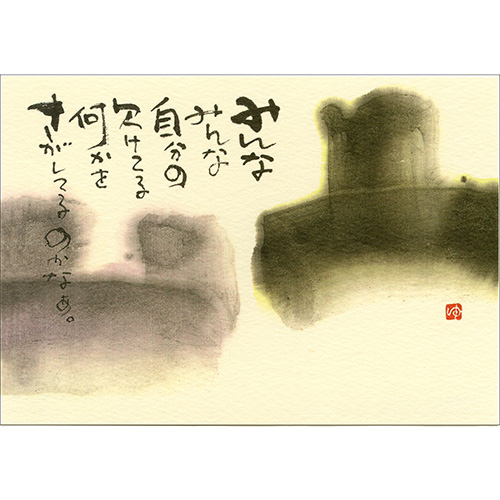 みんな
みんな
自分の
欠けてる
何かを
さがしてるのかなぁ。
ゆ